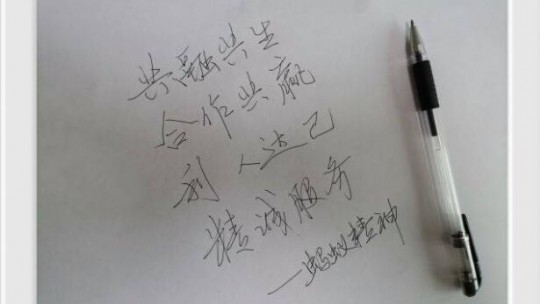 共融共生
合作共赢
利人达己
精诚服务
—蚂蚁精神